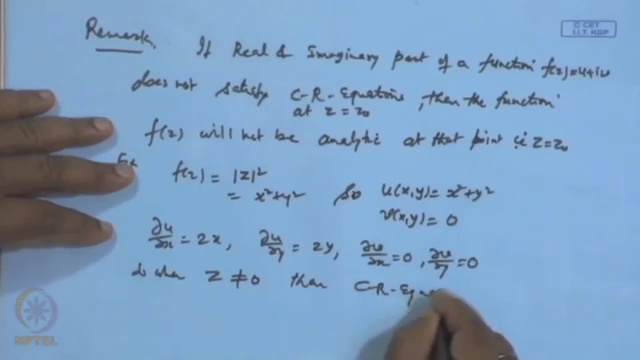 © CET
I.I.T. KGP
Remark If Real & Imaginary part of a function f(z)=u+iv
does not satisfy C-R-Equations, then the function
at z=z₀
f(z) will not be analytic at that point i.e. z=z₀
f(z) = |z|²
= x²+y² So u(x,y) = x²+y²
v(x,y) = 0
∂u/∂x = 2x, ∂u/∂y = 2y, ∂v/∂x = 0, ∂v/∂y = 0
when z ≠ 0 then C-R-Equ
NPTEL